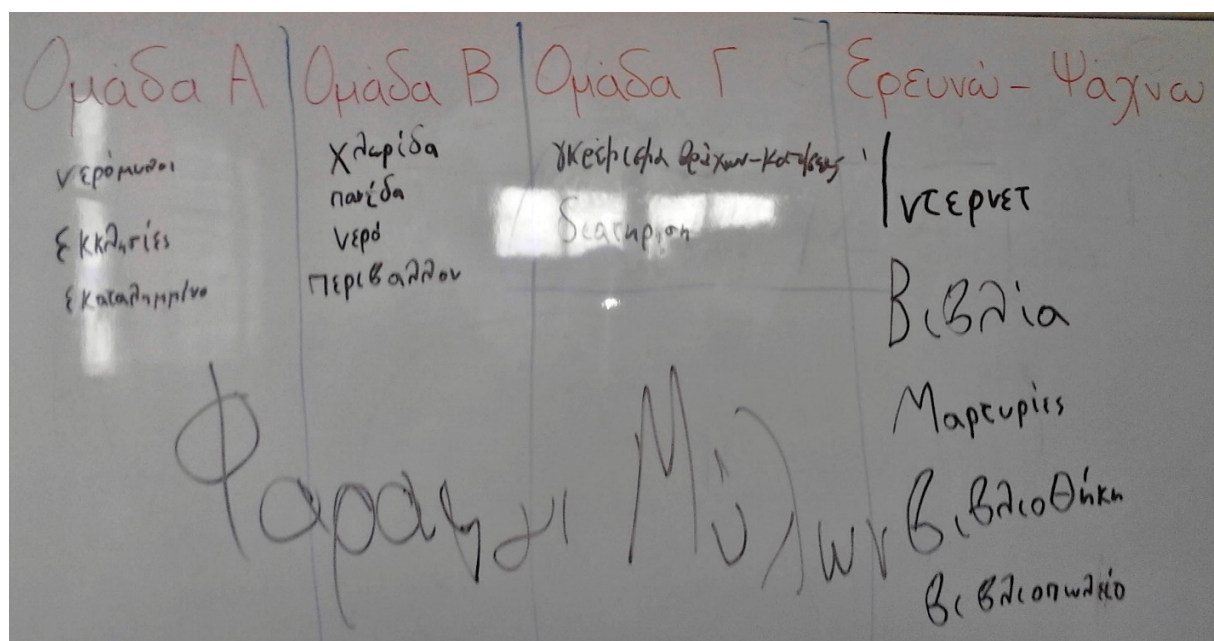 Ομάδα Α
νερόμυλοι
εκκλησίες
εκαταλημμένο
Ομάδα Β
χλωρίδα
πανίδα
νερό
περιβαλλον
Ομάδα Γ
γκρέμισμα βράχων-
διατήριση
Ερευνώ - Ψάχνω
Ίντερνετ
Βιβλία
Μαρτυρίες
Βιβλιοθήκη
βιβλιοπωλείο
Φαράγγι Μύλων